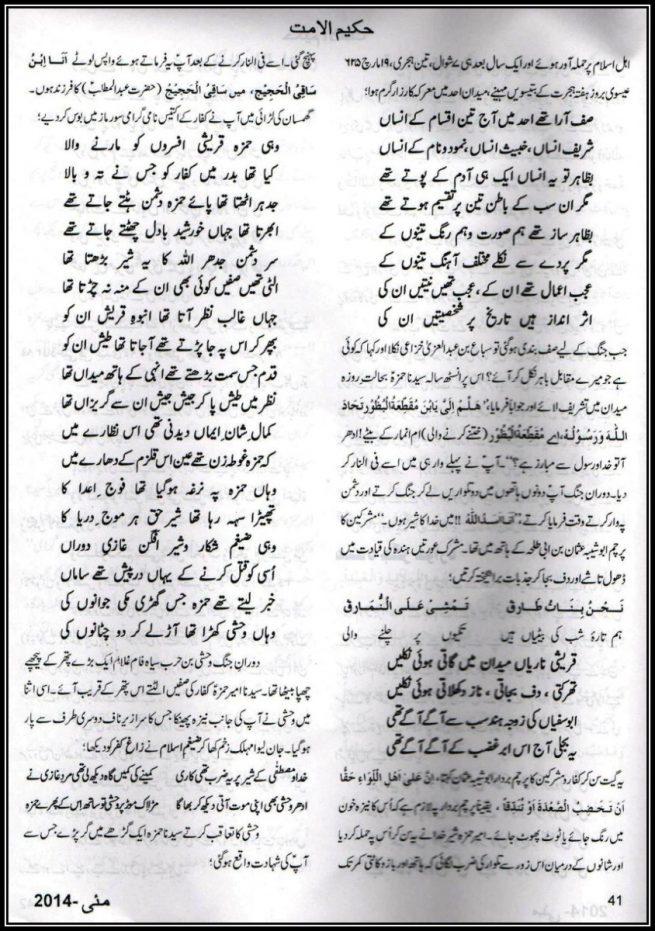 حکیم الامت
اہل اسلام پر حملہ آور ہوئے اور ایک سال بعد ہی ۷ شوال، تین ہجری، ۱۹ مارچ ۶۲۵
عیسوی بروز ہفتہ ہجرت کے بتیسویں مہینے، میدان احد میں معرکہ کارزار گرم ہوا؛
صف آرا تھے احد میں آج تین اقسام کے انساں
شریف انساں، خبیث انساں، نمود و نام کے انساں
بظاہر تو یہ انساں ایک ہی آدم کے پوتے تھے
مگر ان سب کے باطن تین پر تقسیم ہوتے تھے
بظاہر ساز تھے ہم صورت و ہم رنگ تینوں کے
مگر پردے سے نکلے مختلف آہنگ تینوں کے
عجب اعمال تھے ان کے، عجب تھیں نیتیں ان کی
اثر انداز ہیں تاریخ پر شخصیتیں ان کی
جب جنگ کے لیے صف بندی ہو گئی تو سباع بن عبدالعزیٰ خزاعی نکلا اور کہا کہ کوئی
ہے جو میرے مقابل باہر نکل کر آئے؟ اس پر انسٹھ سالہ سیدنا حمزہ بحالت روزہ
میدان میں تشریف لائے اور جوابا فرمایا: ’ھَلُمَّ اِلَیَّ یَابْنَ مُقَطِّعَۃِ الْبُظُوْرِ تَحَادُّ
اللہ وَ رَسُوْلُہٗ، اے مُقَطِّعَۃُ الْبُظُوْر (ختنے کرنے والی) ام انمار کے بیٹے! ادھر
آ تو خدا اور رسول سے مبارز ہے؟‘‘۔ آپ نے پہلے وار ہی میں اسے فی النار کر
دیا۔ دوران جنگ آپ دونوں ہاتھوں میں دو تلواریں لے کر جنگ کرتے اور دشمن
پر وار کرتے وقت فرمایا کرتے؛ ’’اَنَا اَسَدُ اللہ!! میں خدا کا شیر ہوں۔‘‘ مشرکین کا
پرچم ابو شیبہ عثمان بن ابی طلحہ کے ہاتھ میں تھا۔ مشرک عورتیں ہندہ کی قیادت میں
ڈھول تاشے اور دف بجا کر جذبات برانگیختہ کرتیں؛
نَحْنُ بَنَاتُ طَارِق نَمْشِیْ عَلَی النَّمَارِق
ہم تارۂ شب کی بیٹیاں ہیں تکیوں پر چلنے والی
قریشی ناریاں میدان میں گاتی ہوئی نکلیں
تھرکتی، دف بجاتی، ناز دکھلاتی ہوئی نکلیں
ابوسفیاں کی زوجہ ہند سب سے آگے آگے تھی
یہ بجلی آج اس ابر غضب کے آگے آگے تھی
یہ گیت سن کر کفار و مشرکین کا پرچم بردار ابو شیبہ عثمان کہتا، اِنَّ عَلٰی اَھْلِ اللِّوَاءِ حَقًّا
اَنْ تُخْضَبَ الصَّعْدَۃُ اَوْ تَنْدَقَّا۔ یقیناً پرچم بردار پہ لازم ہے کہ اُس کا نیزہ خون
میں رنگ جائے یا ٹوٹ پھوٹ جائے۔ امیر حمزہ شیر خدا نے یہ سن کر اُس پہ حملہ کر دیا
اور شانوں کے درمیان اس زور سے تلوار کی ضرب لگائی کہ ہاتھ اور بازو کاٹتی کمر تک
پہنچ گئی۔ اسے فی النار کرنے کے بعد آپ یہ فرماتے ہوئے واپس لوٹے اَنَا ابْنُ
سَاقِی الْحَجِیْج، میں سَاقِی الْحَجِیْج (حضرت عبدالمطلب) کا فرزند ہوں۔
گھمسان کی لڑائی میں آپ نے کفار کے اکتیس نامی گرامی سورماز میں بوس کر دیے؛
وہی حمزہ قریشی افسروں کو مارنے والا
کیا تھا بدر میں کفار کو جس نے تہ و بالا
جدھر اٹھتا تھا پائے حمزہ دشمن ہٹتے جاتے تھے
ابھرتا تھا جہاں خورشید بادل چھٹتے جاتے تھے
سر دشمن جدھر اللہ کا یہ شیر بڑھتا تھا
الٹی تھیں صفیں کوئی بھی ان کے منہ نہ چڑتا تھا
جہاں غالب نظر آتا تھا انبوہ قریش ان کو
بپھر کر اس پہ جا پڑتے تھے آ جاتا تھا طیش ان کو
قدم جس سمت بڑھتے تھے انہی کے ہاتھ میداں تھا
نظر میں طیش پا کر جیش جیش ان سے گریزاں تھا
کمال شان ایماں دیدنی تھی اس نظارے میں
کہ حمزہ غوطہ زن تھے عین اس قلزم کے دھارے میں
وہاں حمزہ پہ نرغہ ہو گیا تھا فوج اعدا کا
تھپیڑا سہہ رہا تھا شیر حق ہر موج دریا کا
وہی ضیغم شکار و شیر افگن غازی دوراں
اُسی کو قتل کرنے کے یہاں درپیش تھے ساماں
خبر لیتے تھے حمزہ جس گھڑی مکی جوانوں کی
وہاں وحشی کھڑا تھا آڑ لے کر دو چٹانوں کی
دوران جنگ وحشی بن حرب سیاہ فام غلام ایک بڑے پتھر کے پیچھے
چھپا بیٹھا تھا۔ سیدنا امیر حمزہ کفار کی صفیں الٹتے اس پتھر کے قریب آئے۔ اسی اثنا
میں وحشی نے آپ کی جانب نیزہ پھینکا جس کا سرا زیر ناف دوسری طرف سے پار
ہو گیا۔ جان لیوا مہلک زخم کھا کر ضیغم اسلام نے زاغ کفر کو دیکھا؛
خدا و مصطفیٰ کے شیر پر یہ ضرب تھی کاری کمینے کی کمیں گاہ دیکھ لی تھی مرد غازی نے
ادھر وحشی بھی اپنی موت آتی دیکھ کر بھاگا مڑا اک موڑ پر وحشی تو ساتھ اس کے پھرے حمزہ
وحشی کا تعاقب کرتے سیدنا حمزہ ایک گڑھے میں گر پڑے جس سے
آپ کی شہادت واقع ہو گئی؛
مئی -2014
41